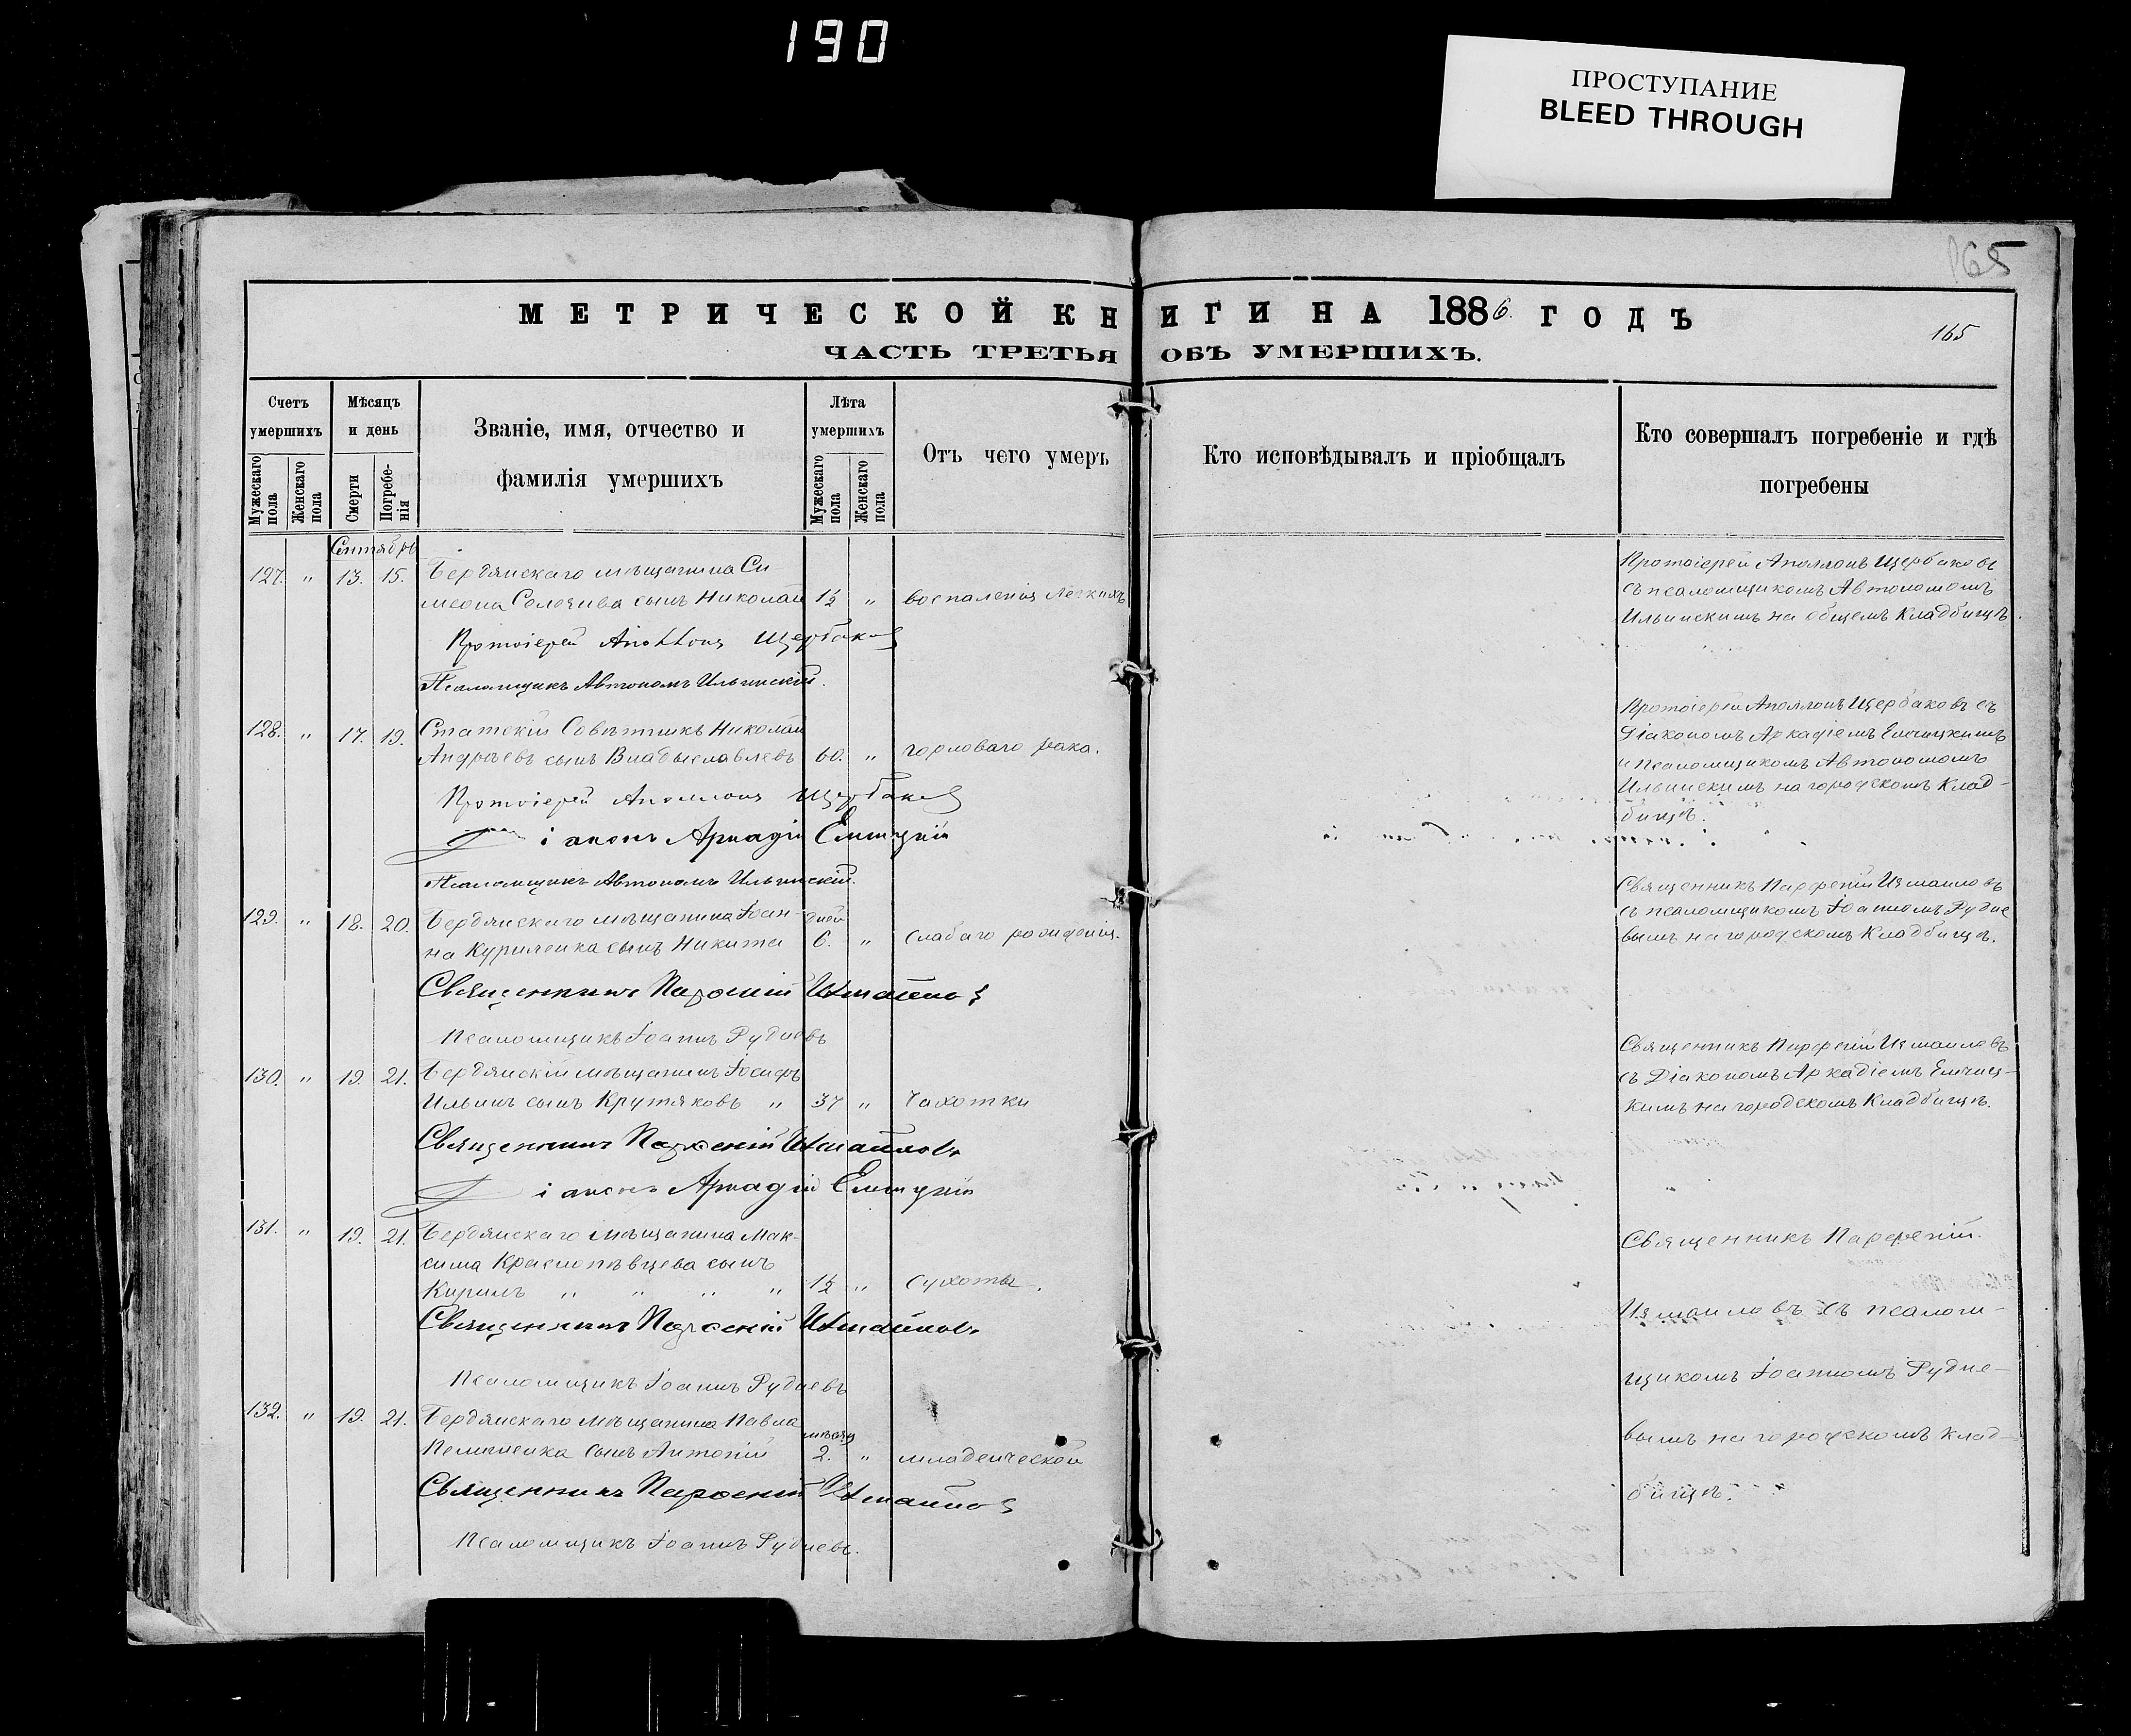 190
ПРОСТУПАНИЕ
BLEED THROUGH
165
МЕТРИЧЕСКОЙ КНИГИ НА 1886 ГОДЪ
165
ЧАСТЬ ТРЕТЬЯ ОБЪ УМЕРШИХЪ.
Счетъ умершихъ
Мужескаго пола
Женскаго пола
Мѣсяцъ и день
Смерти
Погребенія
Званіе, имя, отчество и
фамилія умершихъ
Лѣта умершихъ
Мужескаго пола
Женскаго пола
Отъ чего умеръ
Кто исповѣдывалъ и пріобщалъ
Кто совершалъ погребеніе и гдѣ
погребены
Сентябрь
127. " 13. 15. Бердянскаго мѣщанина Си
меона Солочива сынъ Николай 1½ " воспаленія легкихъ
Протоіерей Аполлонъ Щербаковъ
Псаломщикъ Автономъ Ильинскій.
Протоіерей Аполлонъ Щербаковъ
съ псаломщикомъ Автономомъ
Ильинскимъ на общемъ Кладбищѣ.
128. " 17. 19. Статскій Совѣтникъ Николай
Андреевъ сынъ Владыславлевъ 60. " горловаго рака.
Протоіерей Аполлонъ Щербаковъ
Діаконъ Аркадій Емчицкій
Псаломщикъ Автономъ Ильинскій.
Протоіерей Аполлонъ Щербаковъ съ
Діакономъ Аркадіемъ Емчицкимъ
и псаломщикомъ Автономомъ
Ильинскимъ на городскомъ Клад-
бищѣ.
129. " 18. 20. Бердянскаго мѣщанина Іоан- дней
на Куриленка сынъ Никита 6. " слабаго рожденія.
Священникъ Парѳеній Измаиловъ
Псаломщикъ Іоаннъ Рудневъ
Священникъ Парѳеній Измаиловъ
съ псаломщикомъ Іоанномъ Рудне
вымъ на городскомъ Кладбищѣ.
130. " 19. 21. Бердянскій мѣщанинъ Іосифъ
Ильинъ сынъ Крутяковъ " 37 " Чахотки
Священникъ Парѳеній Измаиловъ
Діаконъ Аркадій Емчицкій
Священникъ Парѳеній Измаиловъ
съ Діакономъ Аркадіемъ Емчиц-
кимъ на городскомъ Кладбищѣ.
131. " 19. 21. Бердянскаго мѣщанина Мак-
сима Краснопѣвцева сынъ
Кирилъ " " " " 1½ " Сухоты.
Священникъ Парѳеній Измаиловъ
Псаломщикъ Іоаннъ Рудневъ
132. " 19. 21. Бердянскаго мѣщанина Павла мѣсяц
сынъ Антоній 2. " младенческой
Священникъ Парѳеній Измаиловъ
Псаломщикъ Іоаннъ Рудневъ.
Священникъ Парѳеній
Измаиловъ съ псалом-
щикомъ Іоанномъ Рудне-
вымъ на городскомъ клад-
бищѣ.